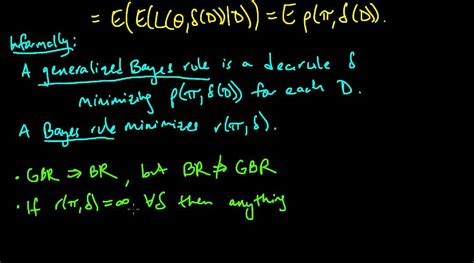 = E(E(L(θ,δ(D))|D)) = E ρ(π, δ(D)).
Informally:
A generalized Bayes rule is a dec. rule δ
minimizing ρ(π, δ(D)) for each D.
A Bayes rule minimizes r(π, δ).
• GBR ⇒ BR, but BR ⇏ GBR
• If r(π, δ) = ∞ ∀δ then anything